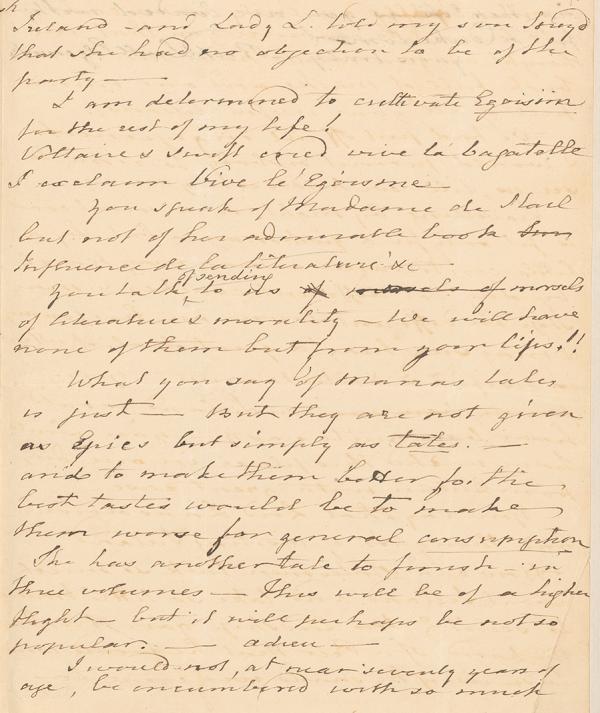 Ireland - and Lady L. told my son Lovejd
that she had no objection to be of the
party —
I am determined to cultivate Egoisim
for the rest of my life!
Voltaire & Swift cried vive la bagatelle
I exclaim Vive le Egöisme —
You speak of Madame de Stael
but not of her admirable book
Influence de la literature &c —
You talk of sending to us morsels of morsels
of literature & morality — We will have
none of them but from your lips.!!
What you say of Marias tales
is just — But they are not given
as Epics but simply as tales. —
and to make them better for the
best tastes would be to make
them worse for general consumption
She has another tale to finish - in
three volumes — This will be of a higher
flight — but it will perhaps be not so
popular. — adieu —
I would not, at near seventy years of
age, be encumbered with so much